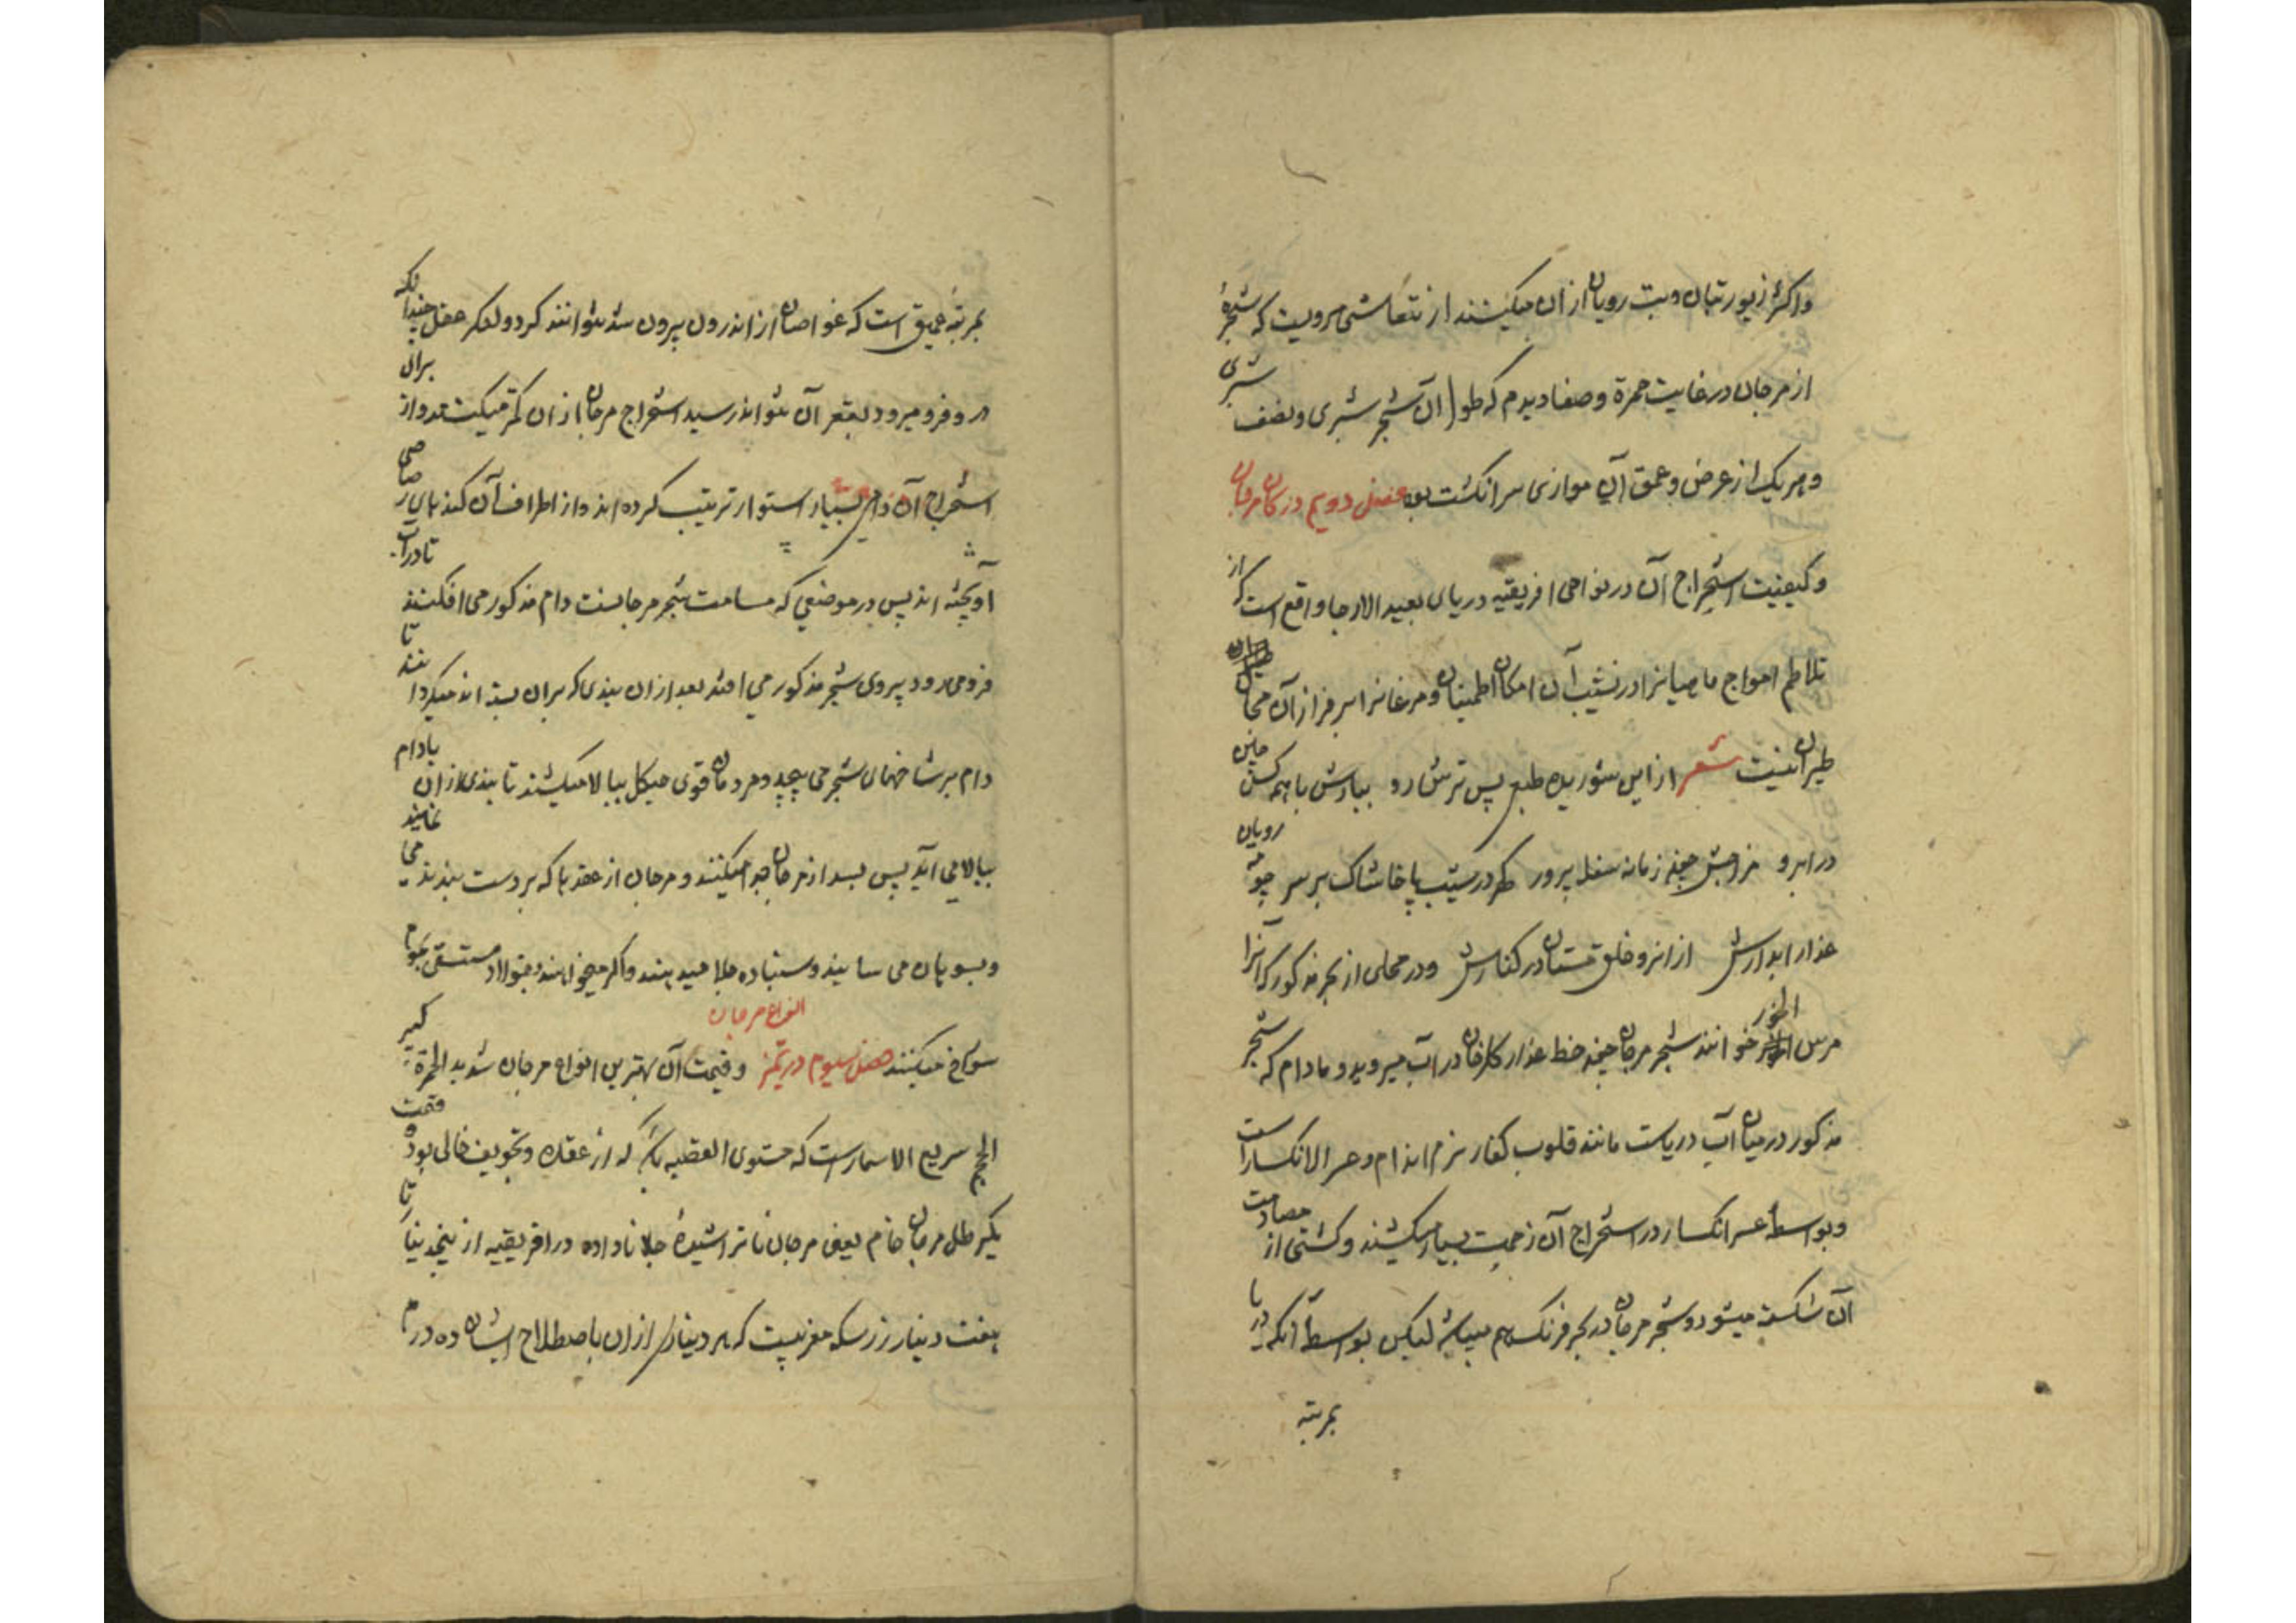 واکثر زیور بتان وبت رویان ازان میکنند از ثقاتش مرویست که شجرهٔ
از مرجان در غایت حمرة وصفا دیدم که طول آن شجر شبری ونصف شبری
وهر یک از عرض وعمق آن موازی سر انکشت بود فصل دویم در کان مرجان
وکیفیت استخراج آن در نواحی افریقیه دریای بعید الارجا واقع است که از
تلاطم امواج ماهیانرا در نشیب آن امکان اطمینان ومرغانرا بر فراز آن مجال
طیران نیست شعر ازاین شوریده طبع پس ترش رو ببارش باهمه کس چین
در ابرو مزاجش چون زمانه سفله پرور کهر در شیب پا خاشاک بر سر چو مه رویان
عذار ابدارش ازانرو خلق مستان در کنارش ودر محلی از بحر مذکور که آنرا
مرس الخزر خوانند شجر مرجان چون خط عذار کلرخان در اب میروید ومادام که شجر
مذکور در میان آب دریاست مانند قلوب کفار نرم اندام وعسر الانکسار است
وبواسطهٔ عسر انکسار در استخراج آن زحمت بسیار میکشند وکشتی از مصادمت
آن شکسته میشود وشجر مرجان در بحر فرنک هم میباشد لیکن بواسطهٔ آنکه دریا
بمرتبه
بمرتبهٔ عمیق است که غواصان از اندرون بیرون شد نتوانند کرد ولنکر عقل چندانکه
در وفرو میرود بقعر آن نتواند رسید استخراج مرجان ازان کمتر میکنند واز برای
استخراج آن دامی بسیار استوار ترتیب کرده اند واز اطراف آن کندهای رصاصی
آویخته اند پس در موضعی که مسامت شجر مرجانست دام مذکور می افکنند تا در آب
فرو می رود وبروی شجر مذکور می افتد بعد ازان بندی که بران بسته اند میکردانند تا
دام بر شاخهای شجر می پیچد ومردمان قوی هیکل ببالا میکشند تا بندی ازان بادام
ببالا می آید پس بسد از مرجان جدا میکنند ومرجان از عقدها که بروست بندبند می نمایند
وبسوهان می سایند وسنباده جلا میدهند واکر میخواهند بفولاد مستقی بحوام
سوراخ میکنند فصل سیوم در تمیز انواع مرجان وقیمت آن بهترین انواع مرجان شدید الحمرة کبیر
الحجم سریع الانسیار است که مستوی القضیب باشد که از عقده وتجویف خالی بود وقیمت
یکرطل مرجان خام یعنی مرجان ناتراشیدهٔ جلا ناداده در افریقیه از پنجدینار تا
هفت دینار زر سکه مغربیست که هر دیناری ازان باصطلاح ایشان ده درم